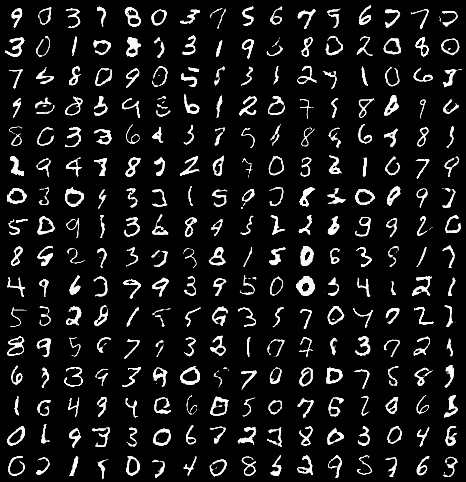 9 0 3 7 8 0 3 7 5 6 7 5 6 7 7
3 0 1 0 8 3 1 9 8 0 2 0 8 0
7 5 8 0 9 0 5 5 3 1 2 9 1 0 6 3
9 8 3 9 6 1 2 0 7 9 8 8 9 0
8 0 3 3 6 4 3 7 5 1 8 9 6 8 3
2 9 4 7 8 2 8 7 0 3 2 1 0 7 9
0 3 0 9 3 3 1 5 9 3 8 0 8 9 3
5 0 9 1 3 6 8 9 3 2 2 8 9 9 2 0
8 9 2 7 3 3 3 8 1 5 0 6 3 9 1 7
4 9 6 3 9 9 3 9 5 0 0 3 4 1 2 1
5 3 2 8 1 5 5 6 3 5 7 0 7 2 7
8 9 5 6 7 9 3 2 1 0 7 8 3 7 2 1
6 3 9 3 9 0 5 7 0 0 0 7 5 8 9
1 6 4 9 4 2 6 0 5 0 7 6 2 0 6 3
0 1 9 3 3 0 6 7 2 3 8 0 3 0 4 6
0 2 1 0 7 4 0 8 5 2 9 5 7 6 9